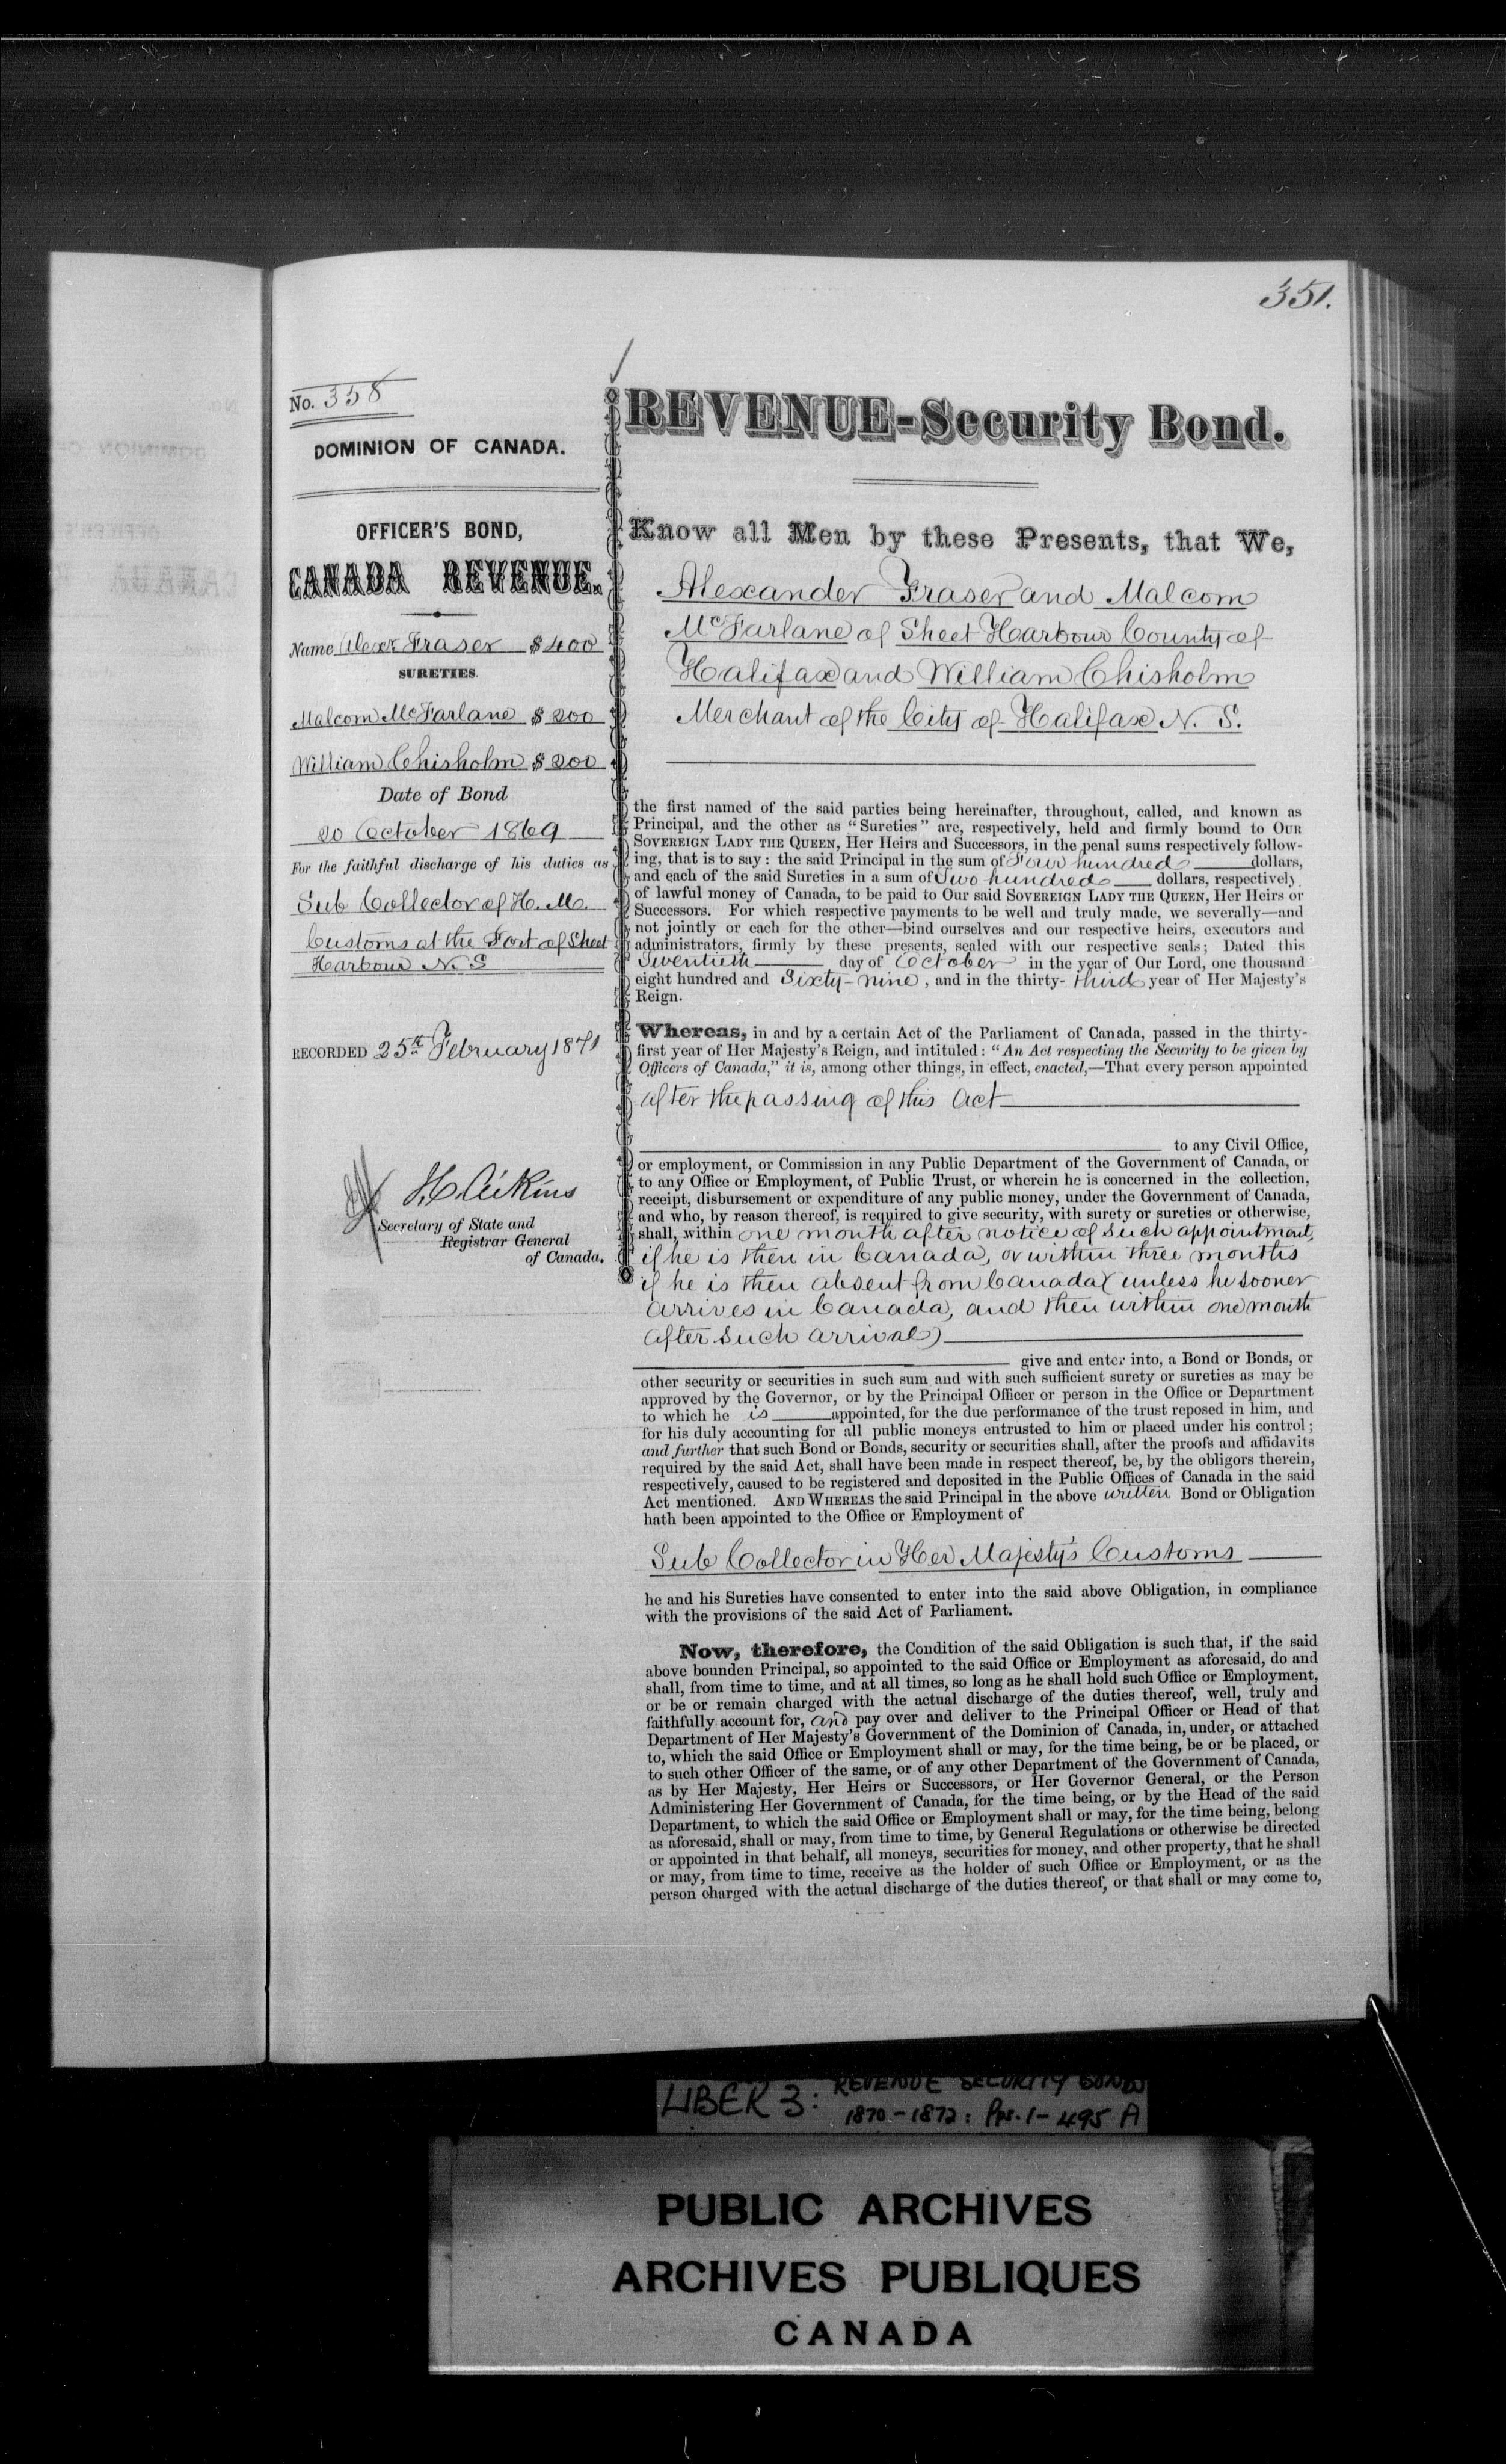 351.
No. 358
DOMINION OF CANADA.
OFFICER'S BOND,
CANADA REVENUE.
Name Alexr Fraser $400
SURETIES.
Malcom McFarlane $200
William Chisholm $200
Date of Bond
20 October 1869
For the faithful discharge of his duties as
Sub Collector of H. M.
Customs at the Port of Sheet
Harbour N. S
RECORDED 25th February 1871
Aikins
Secretary of State and
Registrar General
of Canada.
REVENUE-Security Bond.
Know all Men by these Presents, that We,
Alexander Fraser and Malcom
McFarlane of Sheet Harbour County of
Halifax and William Chisholm
Merchant of the City of Halifax N. S.
the first named of the said parties being hereinafter, throughout, called, and known as
Principal, and the other as "Sureties" are, respectively, held and firmly bound to OUR
SOVEREIGN LADY THE QUEEN, Her Heirs and Successors, in the penal sums respectively follow-
ing, that is to say: the said Principal in the sum of Four hundred dollars,
and each of the said Sureties in a sum of Two hundred dollars, respectively
of lawful money of Canada, to be paid to Our said SOVEREIGN LADY THE QUEEN, Her Heirs or
Successors. For which respective payments to be well and truly made, we severally—and
not jointly or each for the other—bind ourselves and our respective heirs, executors and
administrators, firmly by these presents, sealed with our respective seals; Dated this
Twentieth day of October in the year of Our Lord, one thousand
eight hundred and Sixty-nine, and in the thirty-third year of Her Majesty's
Reign.
Whereas, in and by a certain Act of the Parliament of Canada, passed in the thirty-
first year of Her Majesty's Reign, and intituled: "An Act respecting the Security to be given by
Officers of Canada," it is, among other things, in effect, enacted,—That every person appointed
after the passing of this Act
to any Civil Office,
or employment, or Commission in any Public Department of the Government of Canada, or
to any Office or Employment, of Public Trust, or wherein he is concerned in the collection,
receipt, disbursement or expenditure of any public money, under the Government of Canada,
and who, by reason thereof, is required to give security, with surety or sureties or otherwise,
shall, within one month after notice of such appointment,
if he is then in Canada, or within three months
if he is then absent from Canada (unless he sooner
arrives in Canada, and then within one month
after such arrival)
give and enter into, a Bond or Bonds, or
other security or securities in such sum and with such sufficient surety or sureties as may be
approved by the Governor, or by the Principal Officer or person in the Office or Department
to which he is appointed, for the due performance of the trust reposed in him, and
for his duly accounting for all public moneys entrusted to him or placed under his control;
and further that such Bond or Bonds, security or securities shall, after the proofs and affidavits
required by the said Act, shall have been made in respect thereof, be, by the obligors therein,
respectively, caused to be registered and deposited in the Public Offices of Canada in the said
Act mentioned. AND WHEREAS the said Principal in the above written Bond or Obligation
hath been appointed to the Office or Employment of
Sub Collector in Her Majesty's Customs
he and his Sureties have consented to enter into the said above Obligation, in compliance
with the provisions of the said Act of Parliament.
Now, therefore, the Condition of the said Obligation is such that, if the said
above bounden Principal, so appointed to the said Office or Employment as aforesaid, do and
shall, from time to time, and at all times, so long as he shall hold such Office or Employment,
or be or remain charged with the actual discharge of the duties thereof, well, truly and
faithfully account for, and pay over and deliver to the Principal Officer or Head of that
Department of Her Majesty's Government of the Dominion of Canada, in, under, or attached
to, which the said Office or Employment shall or may, for the time being, be or be placed, or
to such other Officer of the same, or of any other Department of the Government of Canada,
as by Her Majesty, Her Heirs or Successors, or Her Governor General, or the Person
Administering Her Government of Canada, for the time being, or by the Head of the said
Department, to which the said Office or Employment shall or may, for the time being, belong
as aforesaid, shall or may, from time to time, by General Regulations or otherwise be directed
or appointed in that behalf, all moneys, securities for money, and other property, that he shall
or may, from time to time, receive as the holder of such Office or Employment, or as the
person charged with the actual discharge of the duties thereof, or that shall or may come to,
LIBER 3: REVENUE SECURITY BONDS
1870-1872: Pps. 1-495 A
PUBLIC ARCHIVES
ARCHIVES PUBLIQUES
CANADA